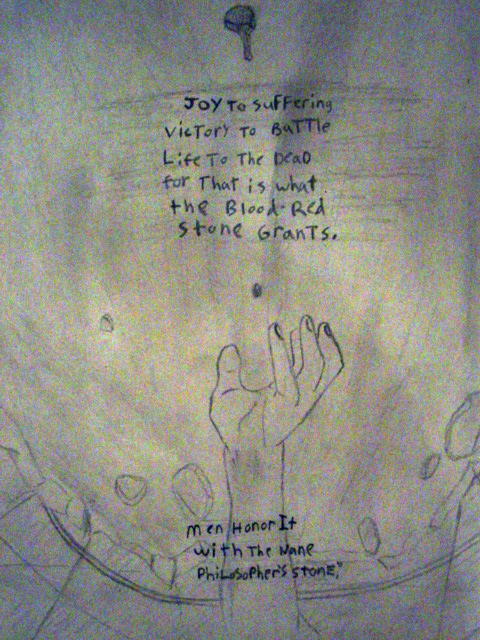 Joy To Suffering
Victory To Battle
Life To The Dead
for That is what
the Blood-Red
Stone Grants.
Men Honor It
With The Name
Philosopher's Stone,"